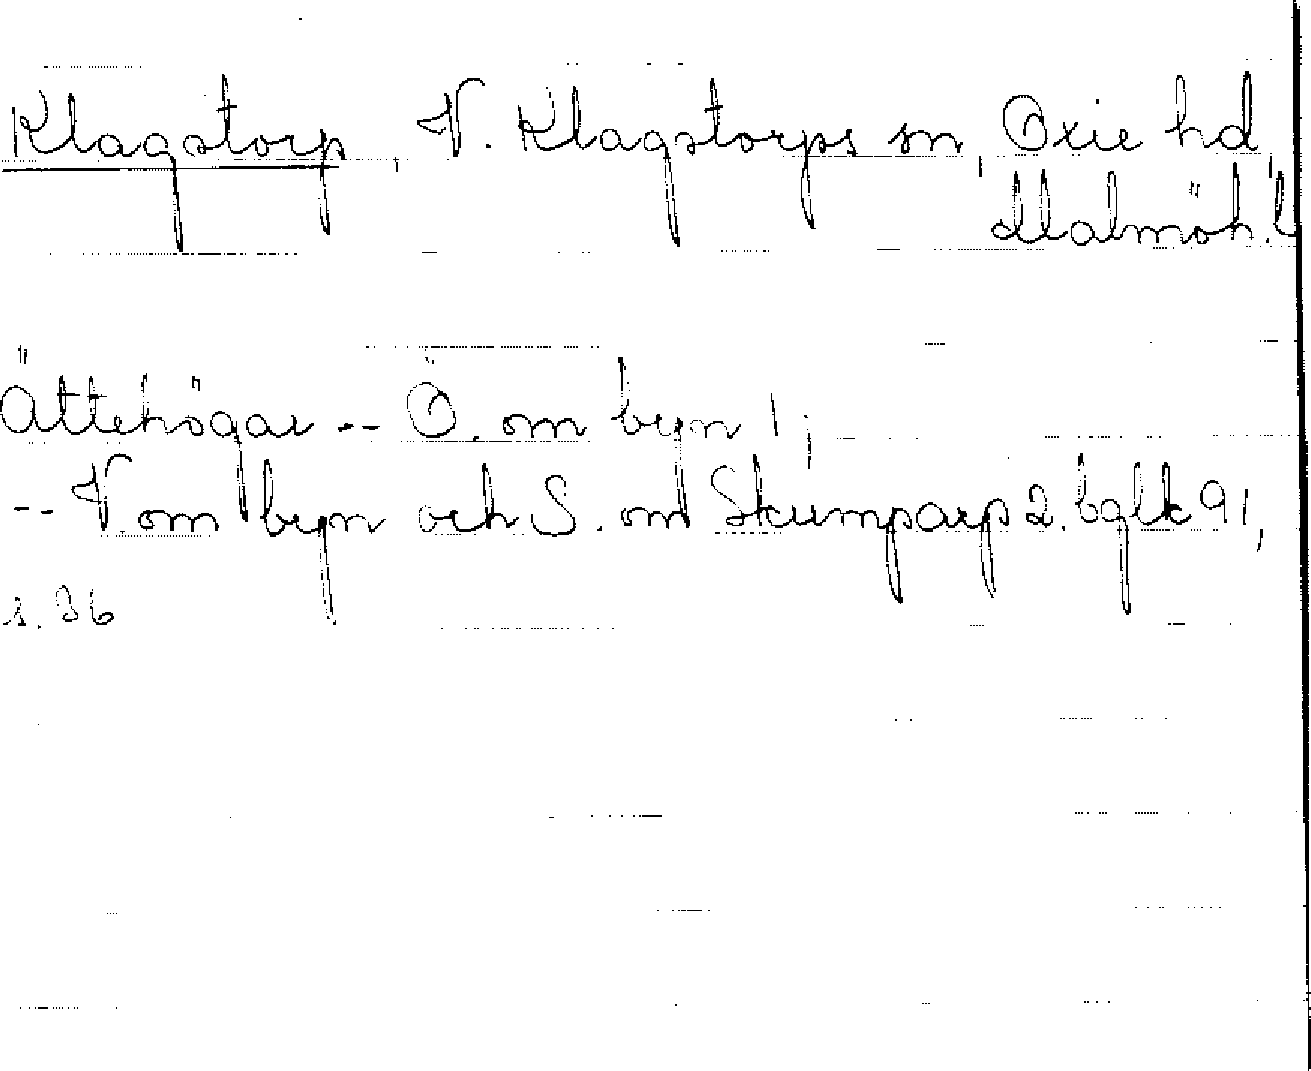 Klagstorp, V. Klagstorps sn, Oxie hd,
Malmöh. L
Ättehögar -- Ö. om byn 1;
-- V. om byn och S. om Skumparp 2. bglk 91,
s. 36